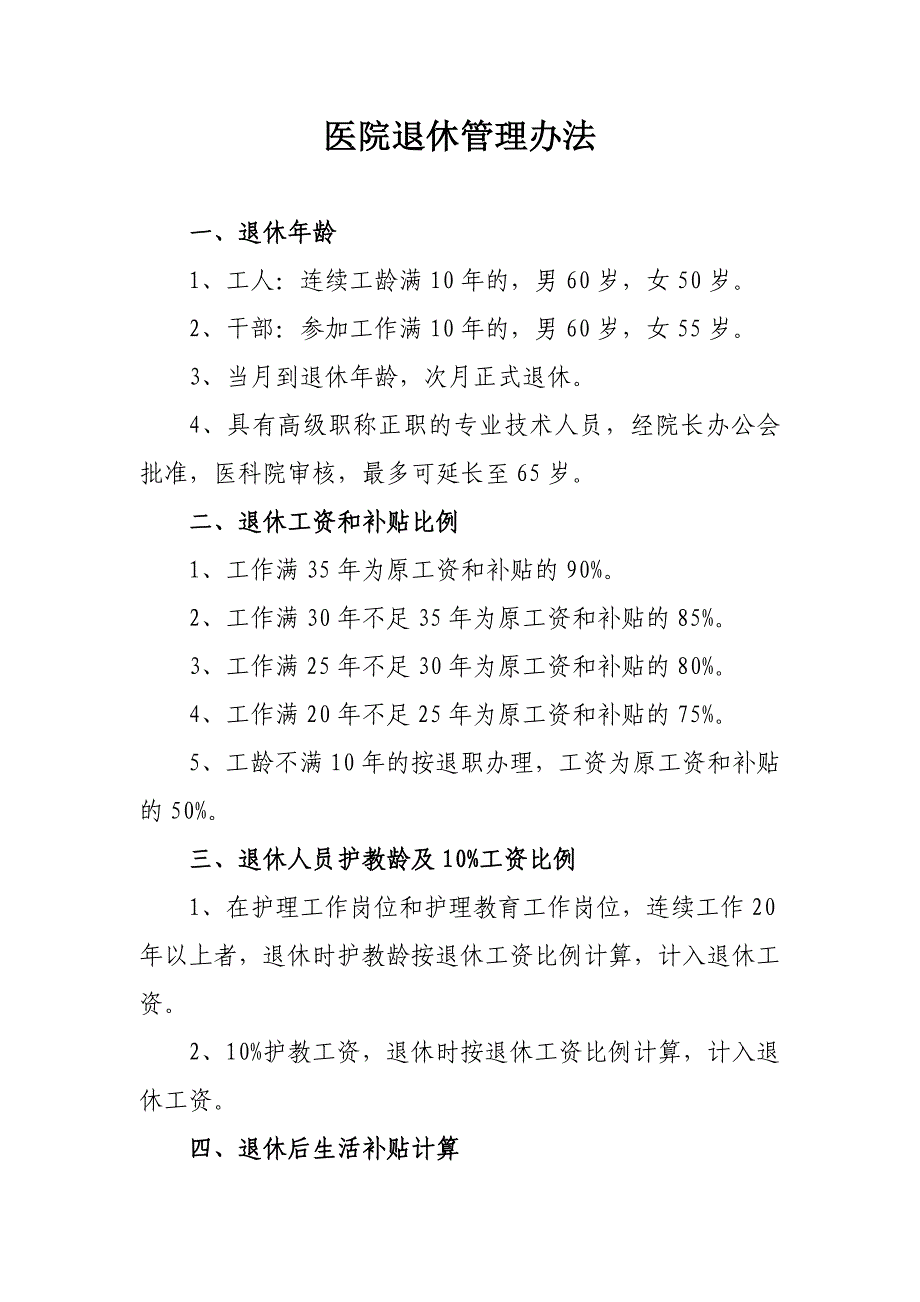 医院退休管理办法
一、退休年龄
1、工人：连续工龄满 10 年的，男 60 岁，女 50 岁。
2、干部：参加工作满 10 年的，男 60 岁，女 55 岁。
3、当月到退休年龄，次月正式退休。
4、具有高级职称正职的专业技术人员，经院长办公会
批准，医科院审核，最多可延长至 65 岁。
二、退休工资和补贴比例
1、工作满 35 年为原工资和补贴的 90%。
2、工作满 30 年不足 35 年为原工资和补贴的 85%。
3、工作满 25 年不足 30 年为原工资和补贴的 80%。
4、工作满 20 年不足 25 年为原工资和补贴的 75%。
5、工龄不满 10 年的按退职办理，工资为原工资和补贴
的 50%。
三、退休人员护教龄及 10%工资比例
1、在护理工作岗位和护理教育工作岗位，连续工作 20
年以上者，退休时护教龄按退休工资比例计算，计入退休工
资。
2、10%护教工资，退休时按退休工资比例计算，计入退
休工资。
四、退休后生活补贴计算